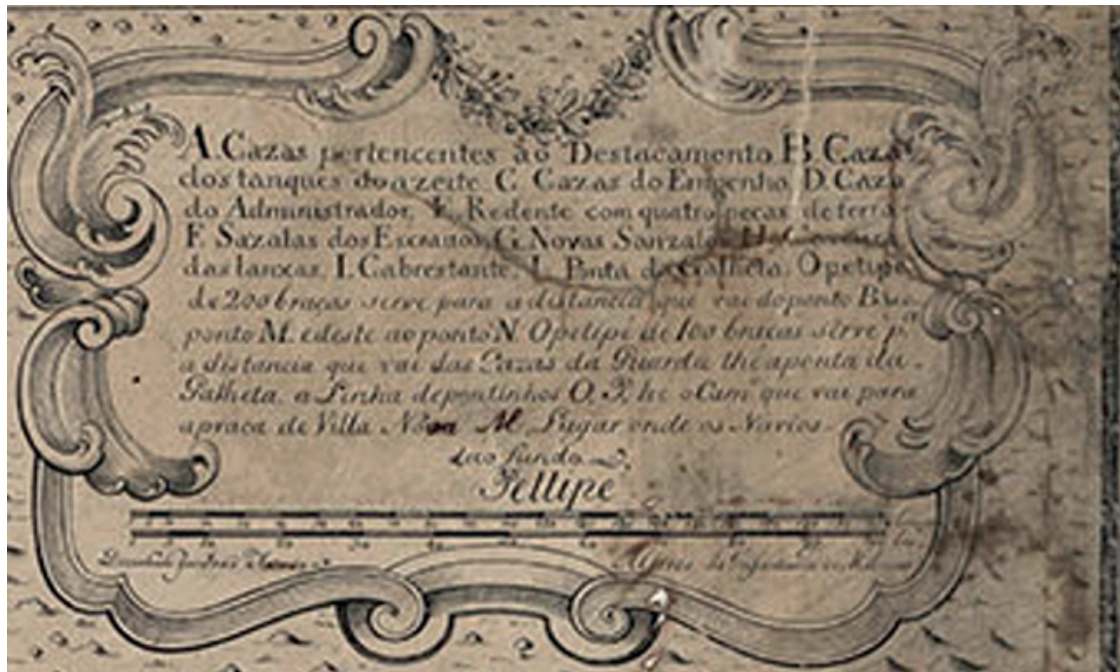 A. Cazas pertencentes ao Destacamento B. Caza
dos tanques do azeite. C. Cazas do Emgenho. D. Caza
do Administrador. E. Redente com quatro peças de ferro
F. Sazalas dos Escravos. G. Novas Sanzalas. H.
das lanxas. I. Cabrestante. L. Ponta da Galheta. O petipe
de 200 braças serve para a distancia que vai do ponto B
ponto M. e deste ao ponto N. O petipe de 100 braças serve pª
a distancia que vai das Cazas da Guarda thé a ponta da
Galheta a Linha de pontinhos O. P. he o Camº que vai para
a praça de Villa Nova M. Lugar onde os Navios
dao fundo
Pettipe